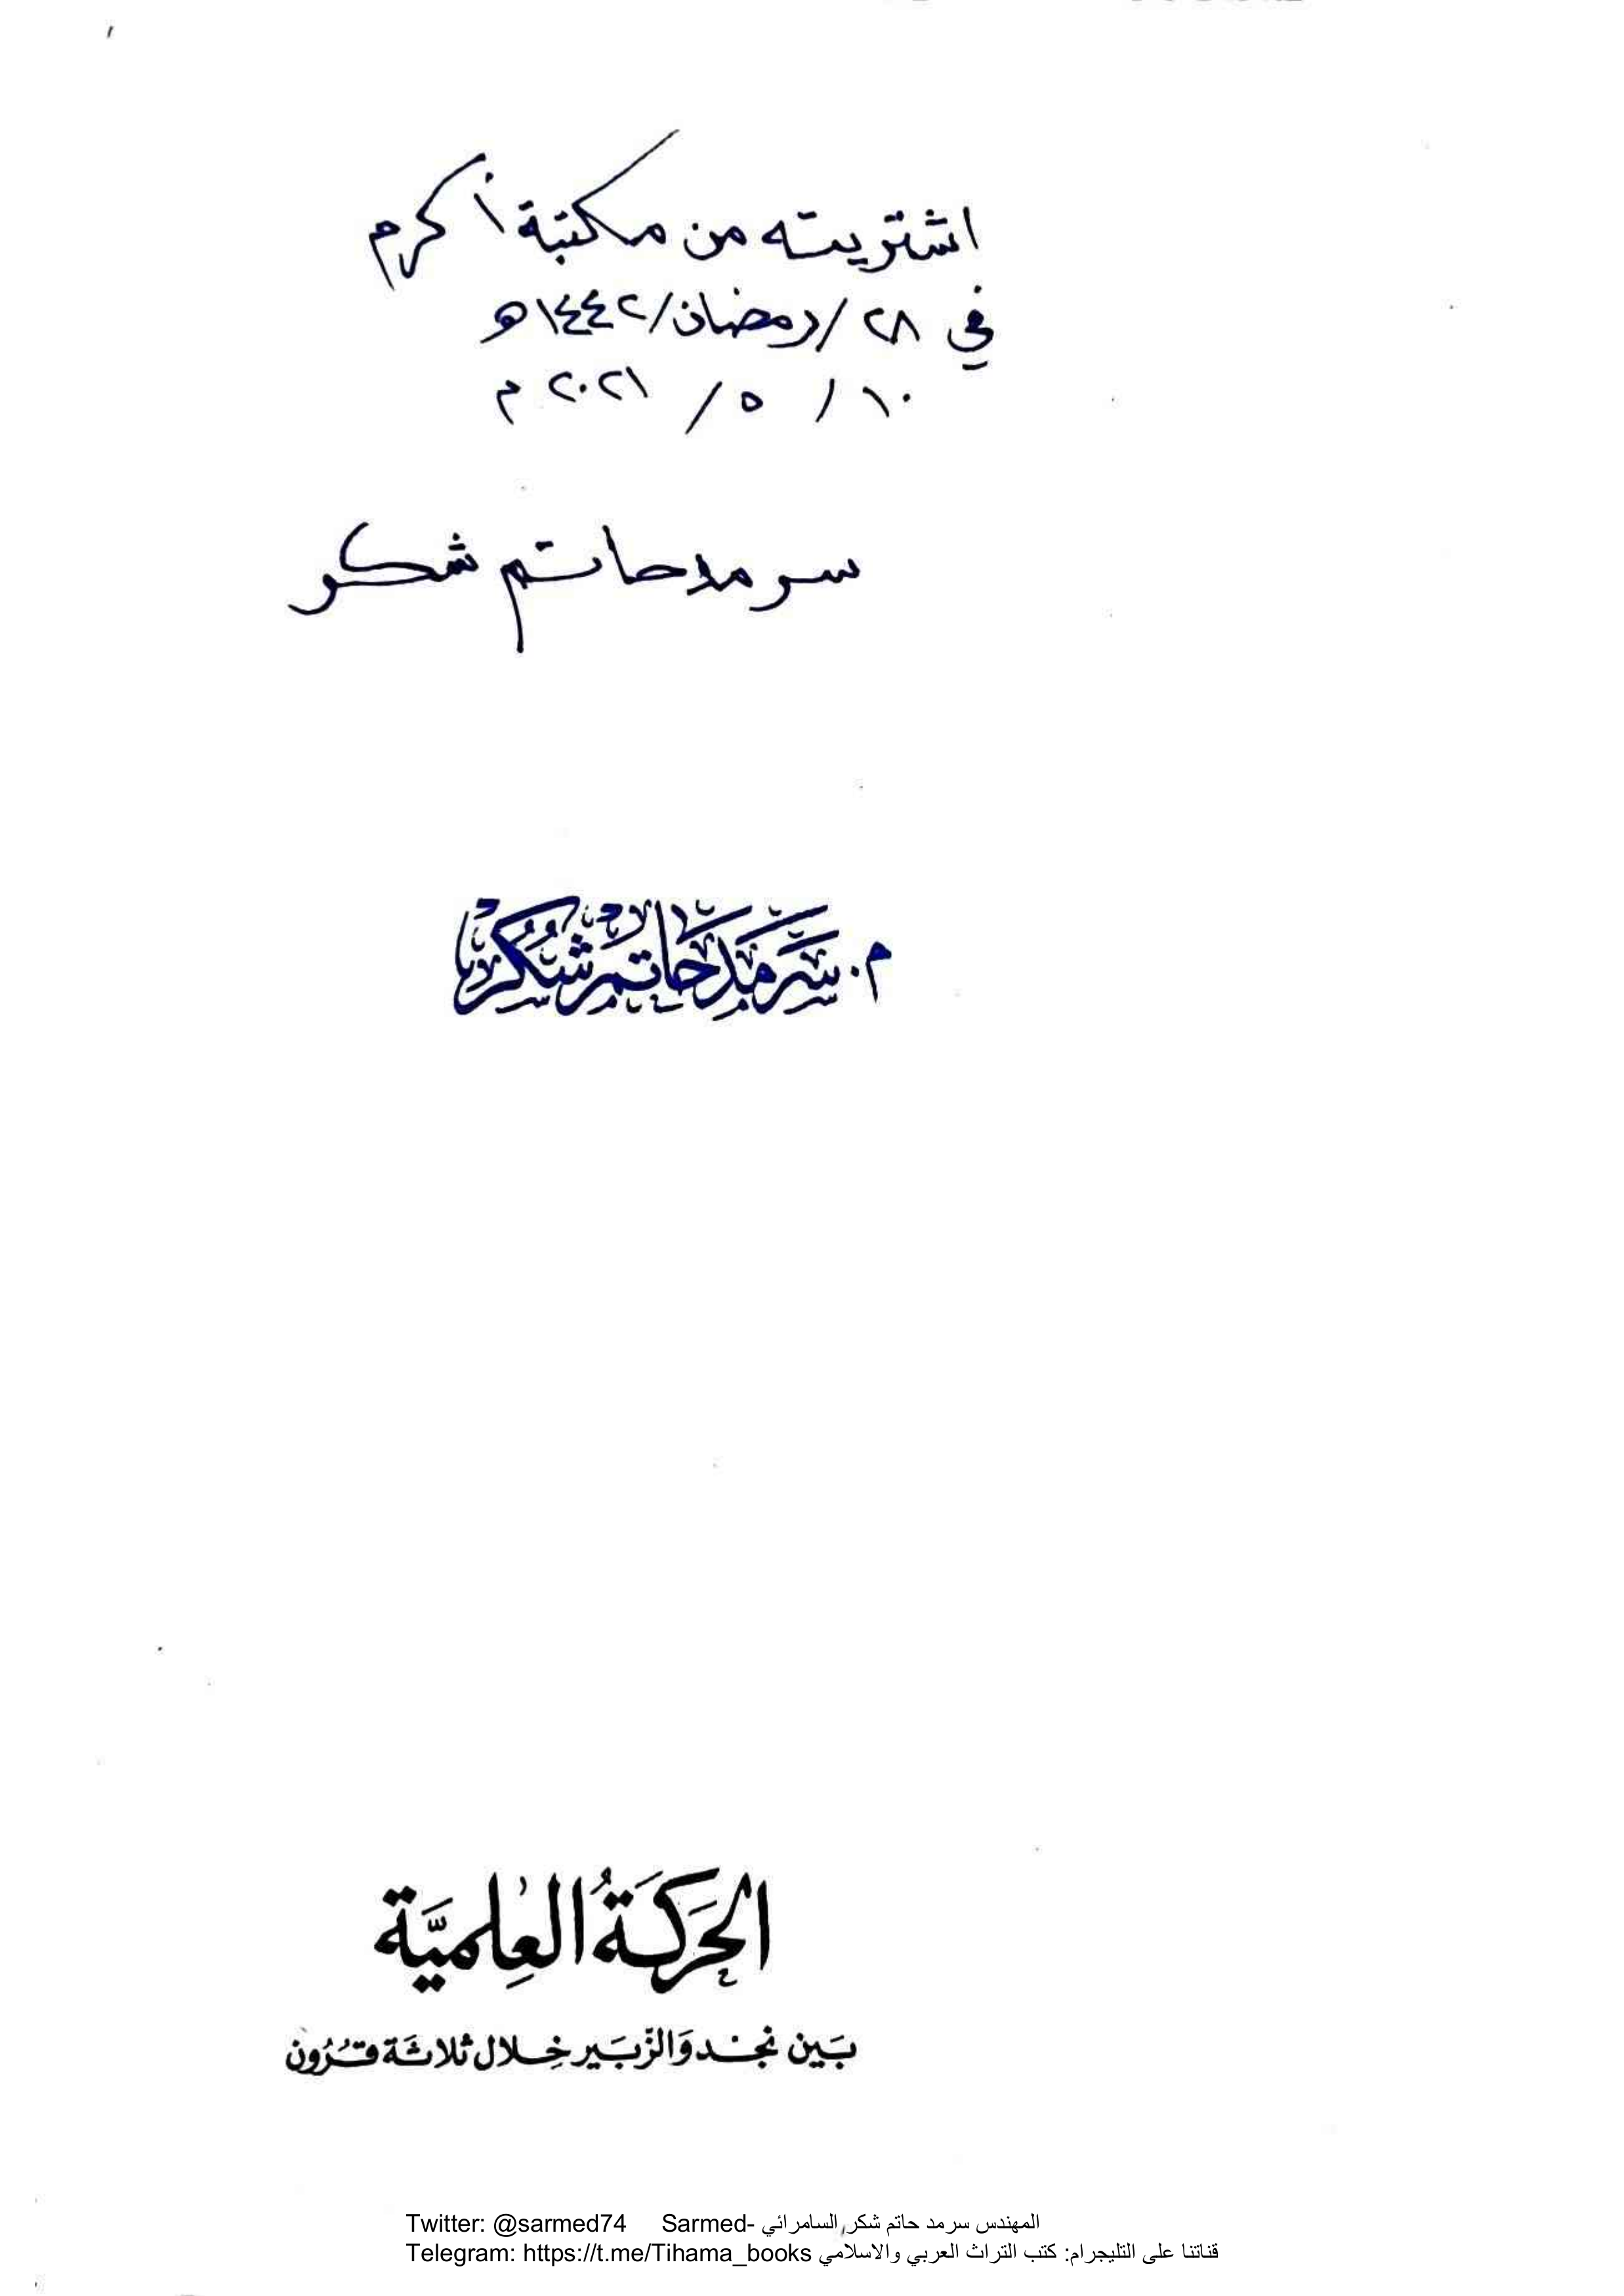 اشتريته من مكتبة أكرم
في ٢٨/رمضان/١٤٤٢هـ
١٠/ ٥/ ٢٠٢١ م
سرمد حاتم شكر
م. سَرمَد حَاتم شُكر
الحَرَكَةُ العِلميَّة
بَين نجْد وَالزّبَير خِلال ثَلاثَة قُرُون
Twitter: @sarmed74 Sarmed- المهندس سرمد حاتم شكر السامرائي
Telegram: https://t.me/Tihama_books قناتنا على التليجرام: كتب التراث العربي والاسلامي